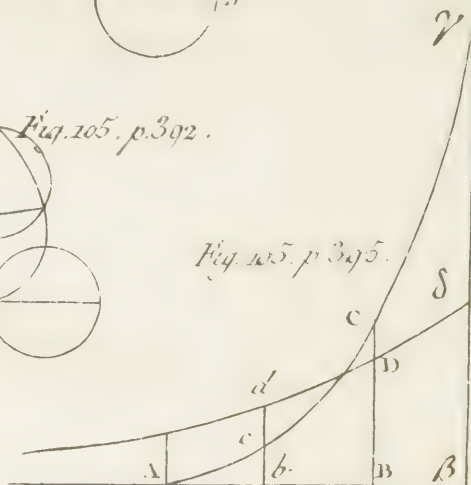 γ
Fig. 105. p. 392.
Fig. 105. p. 395.
δ
C
D
d
c
A
b.
B
β